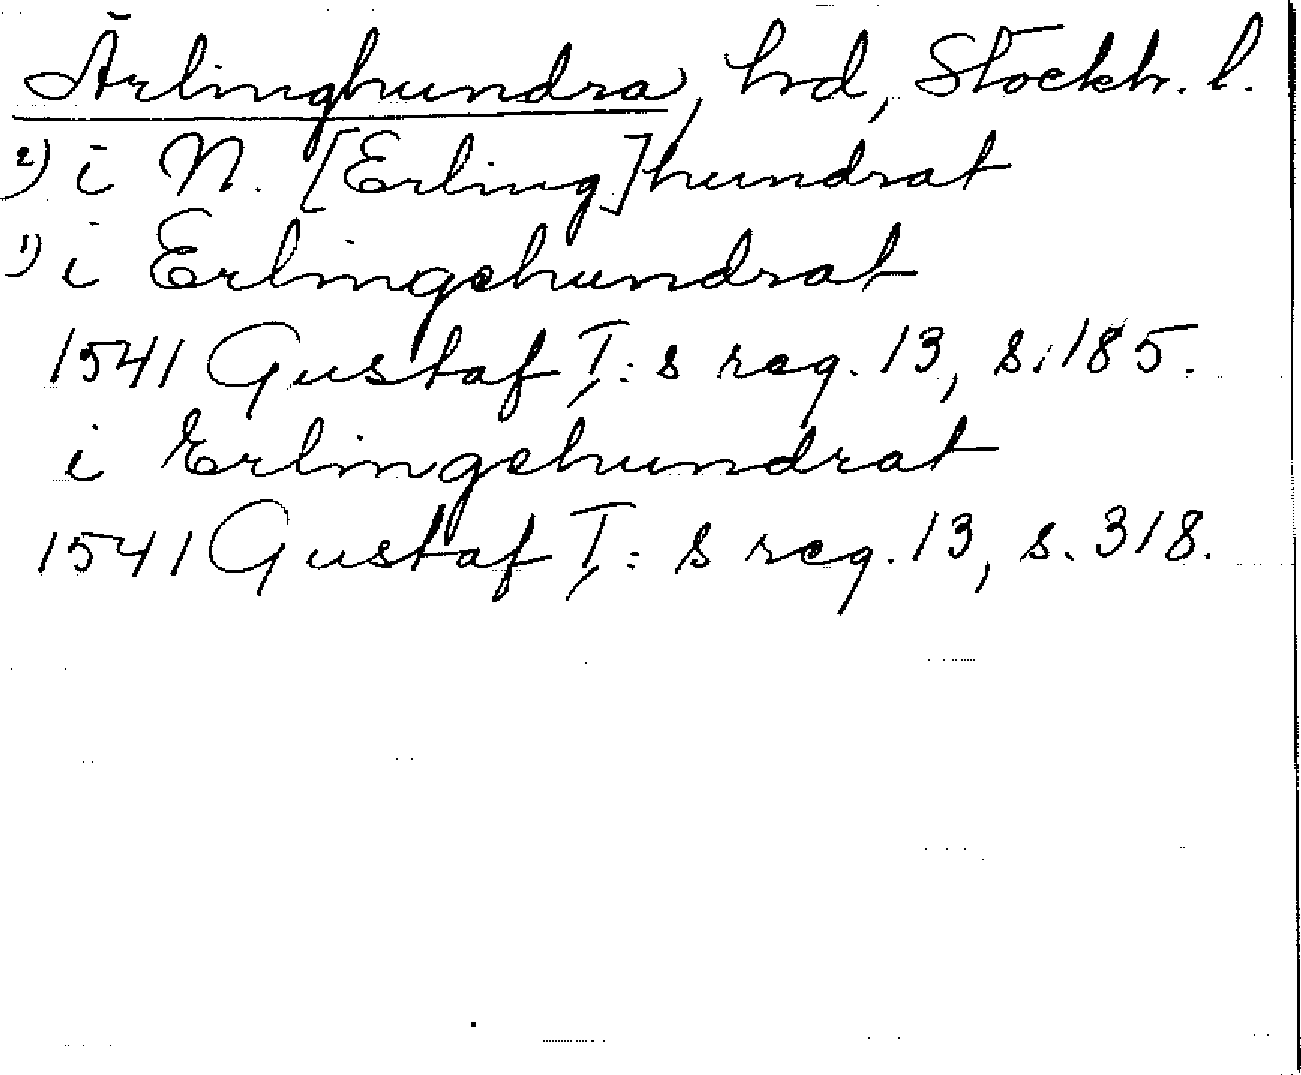 Ärlinghundra, hrd, Stockh. l.
2) i N. [Erling]hundrat
1) i Erlingehundrat
1541 Gustaf I:s reg. 13, s. 185.
i Erlingehundrat
1541 Gustaf I:s reg. 13, s. 318.